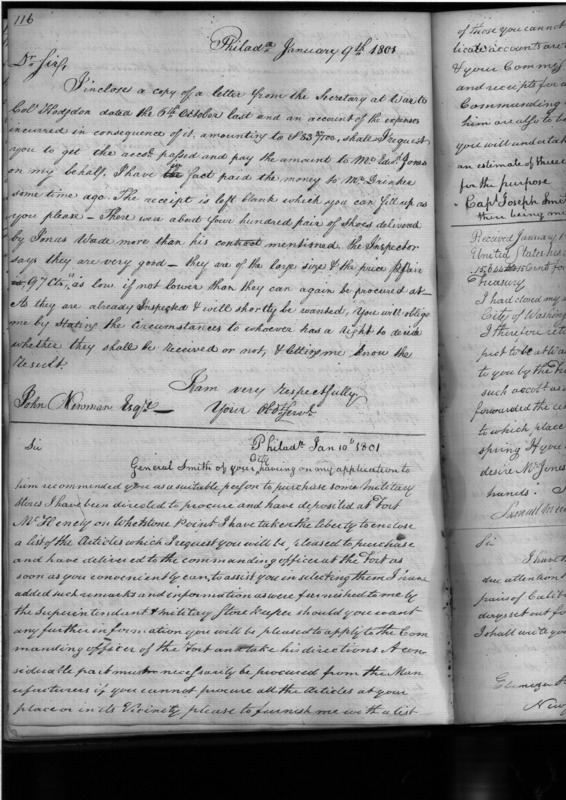 116
Philada January 9th 1801
Dr. Sir,
I inclose a copy of a letter from the Secretary at War to
Coll Hodgdon dated the 6th October last and an account of the expenses
incurred in consequence of it, amounting to $ 53 /100, shall I request
you to get the acct. passed and pay the amount to Mr Jones
on my behalf. I have in fact paid the money to Mr. Drinker
some time ago. The receipt is left blank which you can fill up as
you please — There were about four hundred pair of Shoes delivered
by Jonas Wade more than his contract mentioned. The Inspector
says they are very good — they are of the large size & the price
97 Cts, as low if not lower than they can again be procured at —
As they are already Inspected & will shortly be wanted, You will oblige
me by stating the circumstances to whoever has a right to decide
whether they shall be received or not, & letting me know the
result.
I am very respectfully
John Newman Esqr — Your Obd Servt.
Philada Jan 10th 1801
Sir
General Smith of your City having on my application to
him recommended you as a suitable person to purchase some Military
Stores I have been directed to procure and have deposited at Fort
McHenery on Whetstone Point I have taken the liberty to enclose
a list of the Articles which I request you will be pleased to purchase
and have delivered to the commanding officer at the Fort as
soon as you conveniently can, to assist you in selecting them I have
added such remarks and information as were furnished to me by
the Superintendent & military Store keeper should you want
any further information you will be pleased to apply to the Com
manding officer of the Fort and take his directions A con
siderable part must necessarily be procured from the Man
ufacturers if you cannot procure all the Articles at your
place or in its Vicinity please to furnish me with a list
of those you cannot
licate accounts are
& your Commiss
and receipts for
Commanding
him are also to be
you will undertake
an estimate of these
for the purpose
Capt Joseph Smi
there being one
Received January 1
United States
Treasury
I had closed my
City of Washing
I therefore
pect to be at Wa
to you by the
such acct as
forwarded the
to which place
spring If you
desire Mr Jones
hands.
Samuel
Sir
I have
due attention
pairs of
days set out for
I shall write you
Ebenezer
New